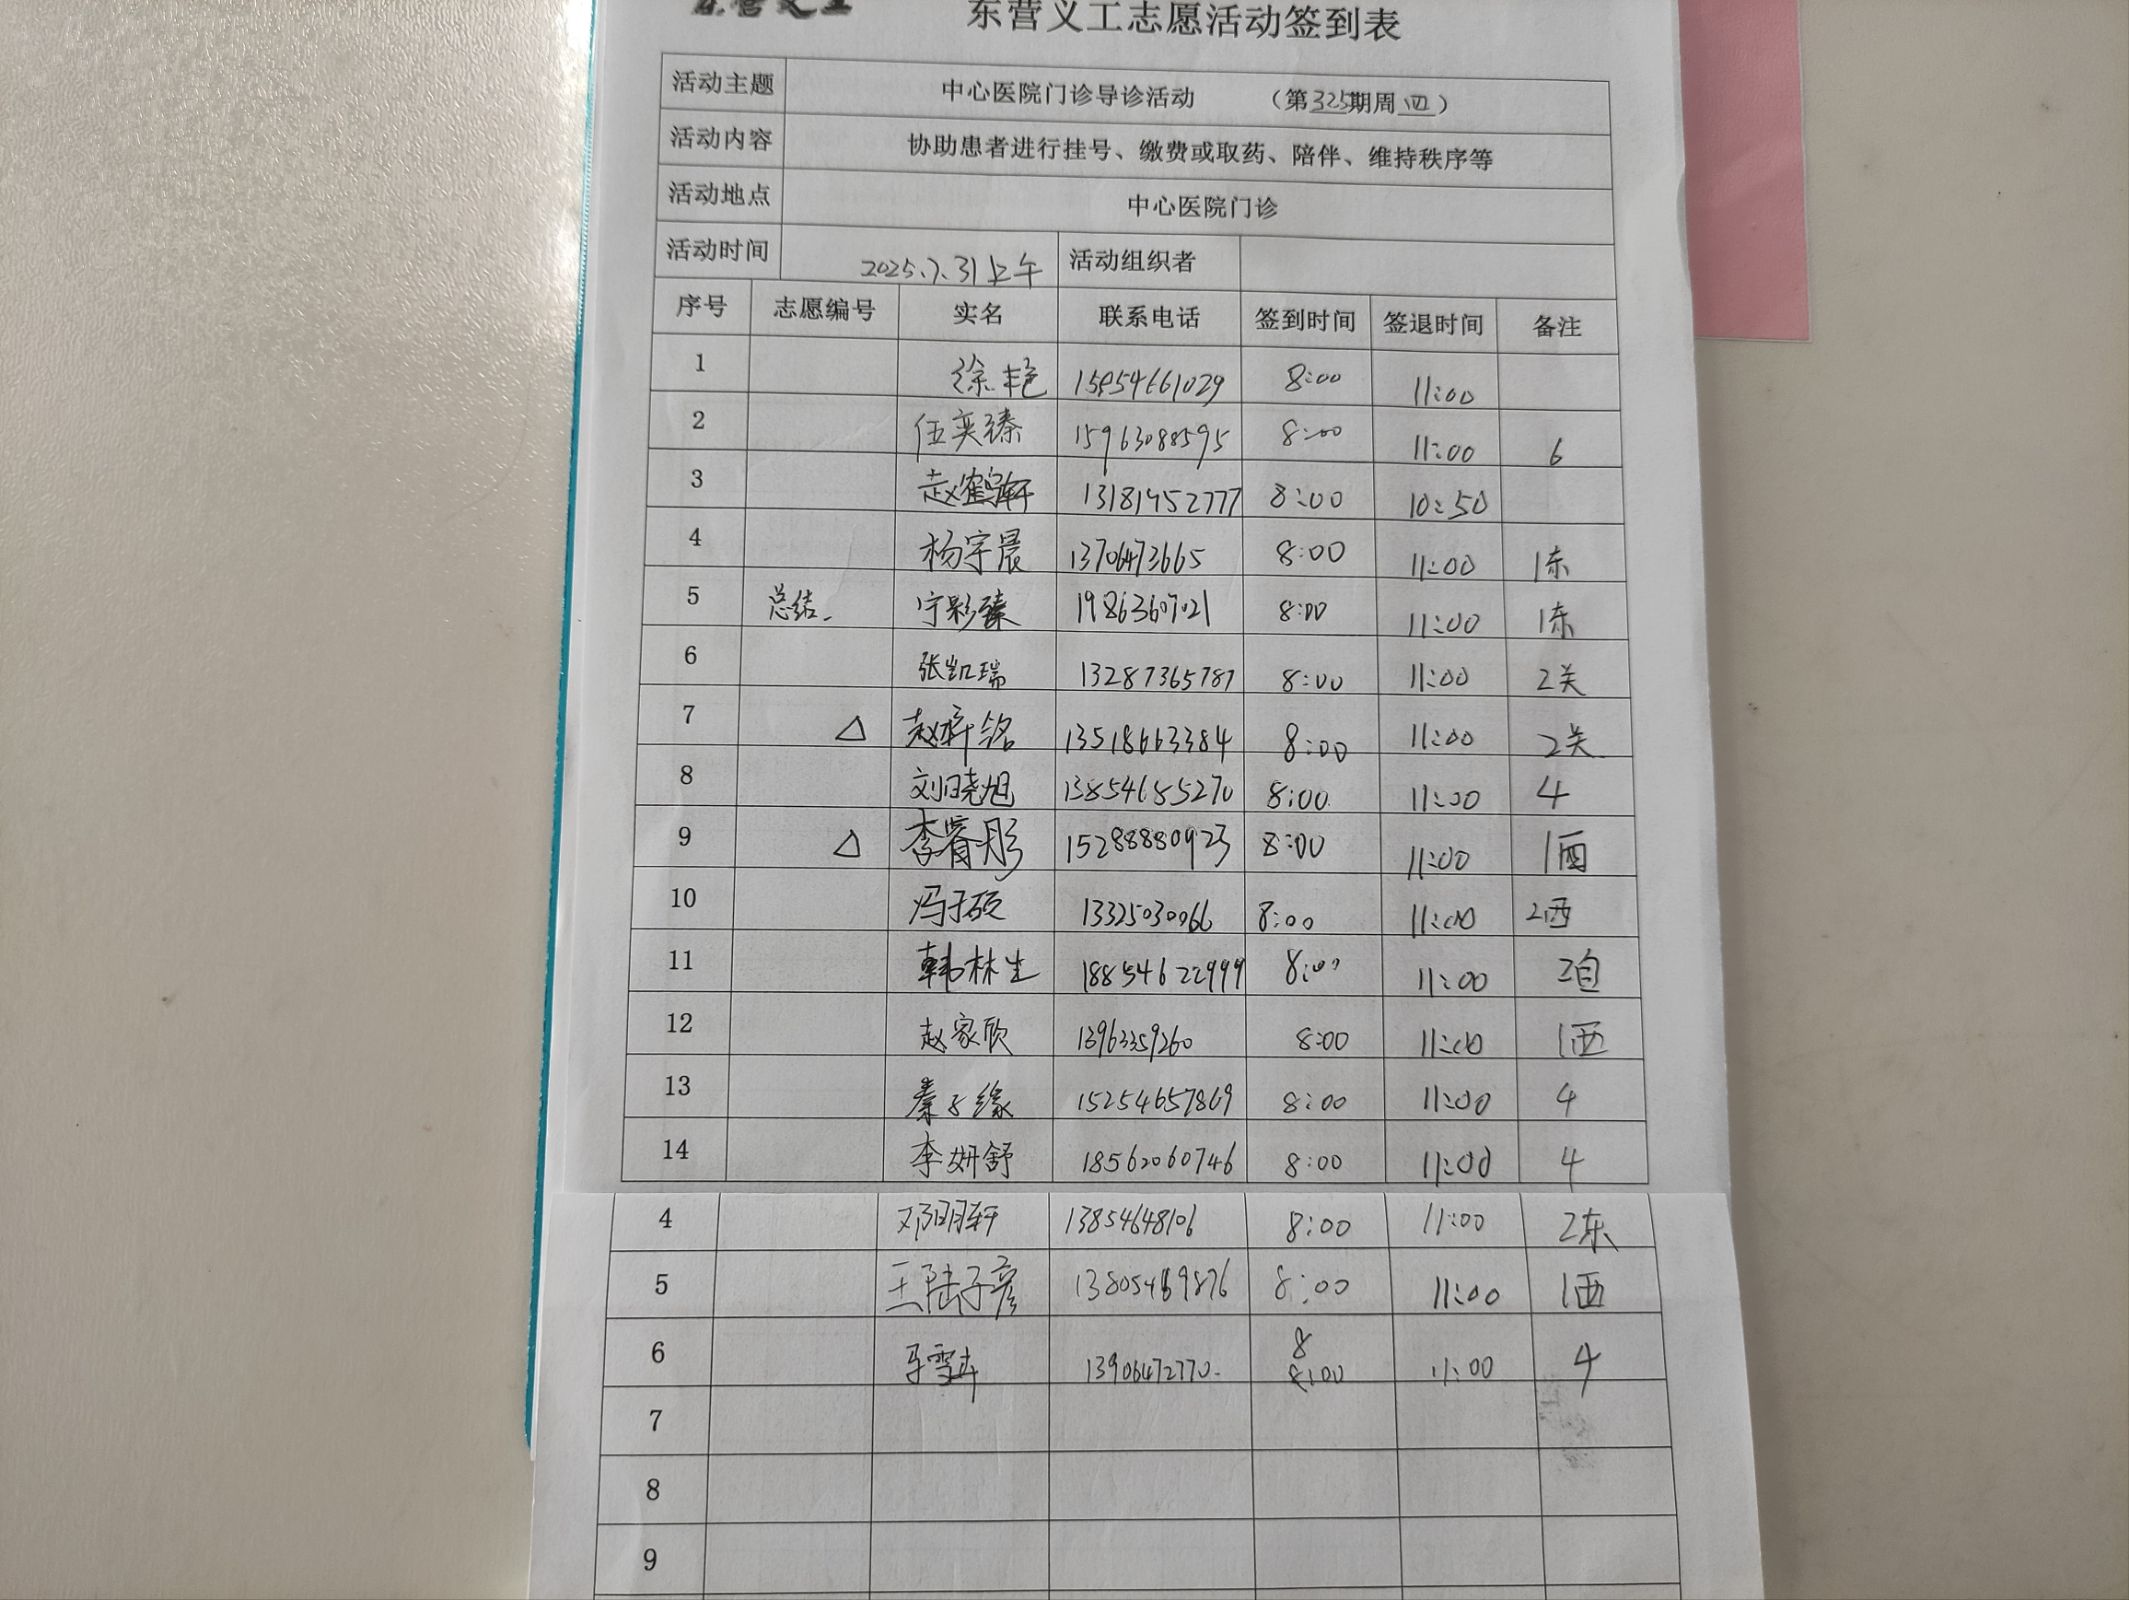 东营义工志愿活动签到表
活动主题 中心医院门诊导诊活动 （第325期周四）
活动内容 协助患者进行挂号、缴费或取药、陪伴、维持秩序等
活动地点 中心医院门诊
活动时间 2025.7.31上午 活动组织者
序号 志愿编号 实名 联系电话 签到时间 签退时间 备注
1 徐艳 15954661029 8:00 11:00
2 伍奕臻 15963088595 8:00 11:00 6
3 赵鹤轩 13181952777 8:00 10:50
4 杨宇晨 13706473665 8:00 11:00 1东
5 总结. 宁影臻 19863607021 8:00 11:00 1东
6 张凯瑞 13287365787 8:00 11:00 2关
7 △ 赵梓铭 13518663384 8:00 11:00 2关
8 刘晓旭 13854685270 8:00 11:00 4
9 △ 李睿彤 15288880923 8:00 11:00 1西
10 冯子硕 13325030066 8:00 11:00 2西
11 韩林生 18854622999 8:00 11:00 2自
12 赵家欣 13963359260 8:00 11:00 1西
13 秦子缘 15254657869 8:00 11:00 4
14 李妍舒 18562060746 8:00 11:00 4
4 邓明轩 13854648106 8:00 11:00 2东
5 王陆子彦 13805469876 8:00 11:00 1西
8
6 13906472770. 8:00 11:00 4
7
8
9